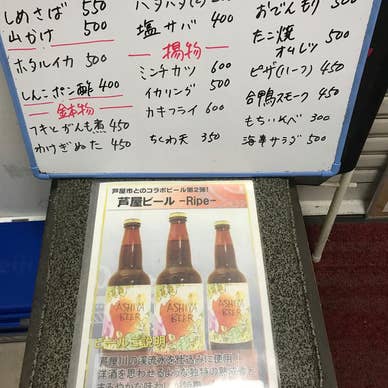 しめさば 550
山かけ 500
ホタルイカ 500
しんこポン酢 400
鉢物
フキとがんも煮 450
わけぎぬた 450
塩サバ 400
揚物
ミンチカツ 600
イカリング 500
カキフライ 600
ちくわ天 350
おでんもり 500
たこ焼
オムレツ 500
ピザ(ハーフ) 450
合鴨スモーク 450
もちいべ 300
海幸サラダ 500
芦屋市とのコラボビール第2弾!
芦屋ビール -Ripe-
ASHIYA
BEER
ASHIYA
BEER
ASHIYA
BEER
ビールご説明
芦屋川の渓流水を仕込みに使用!
洋酒を思わせるような独特の熟成香と